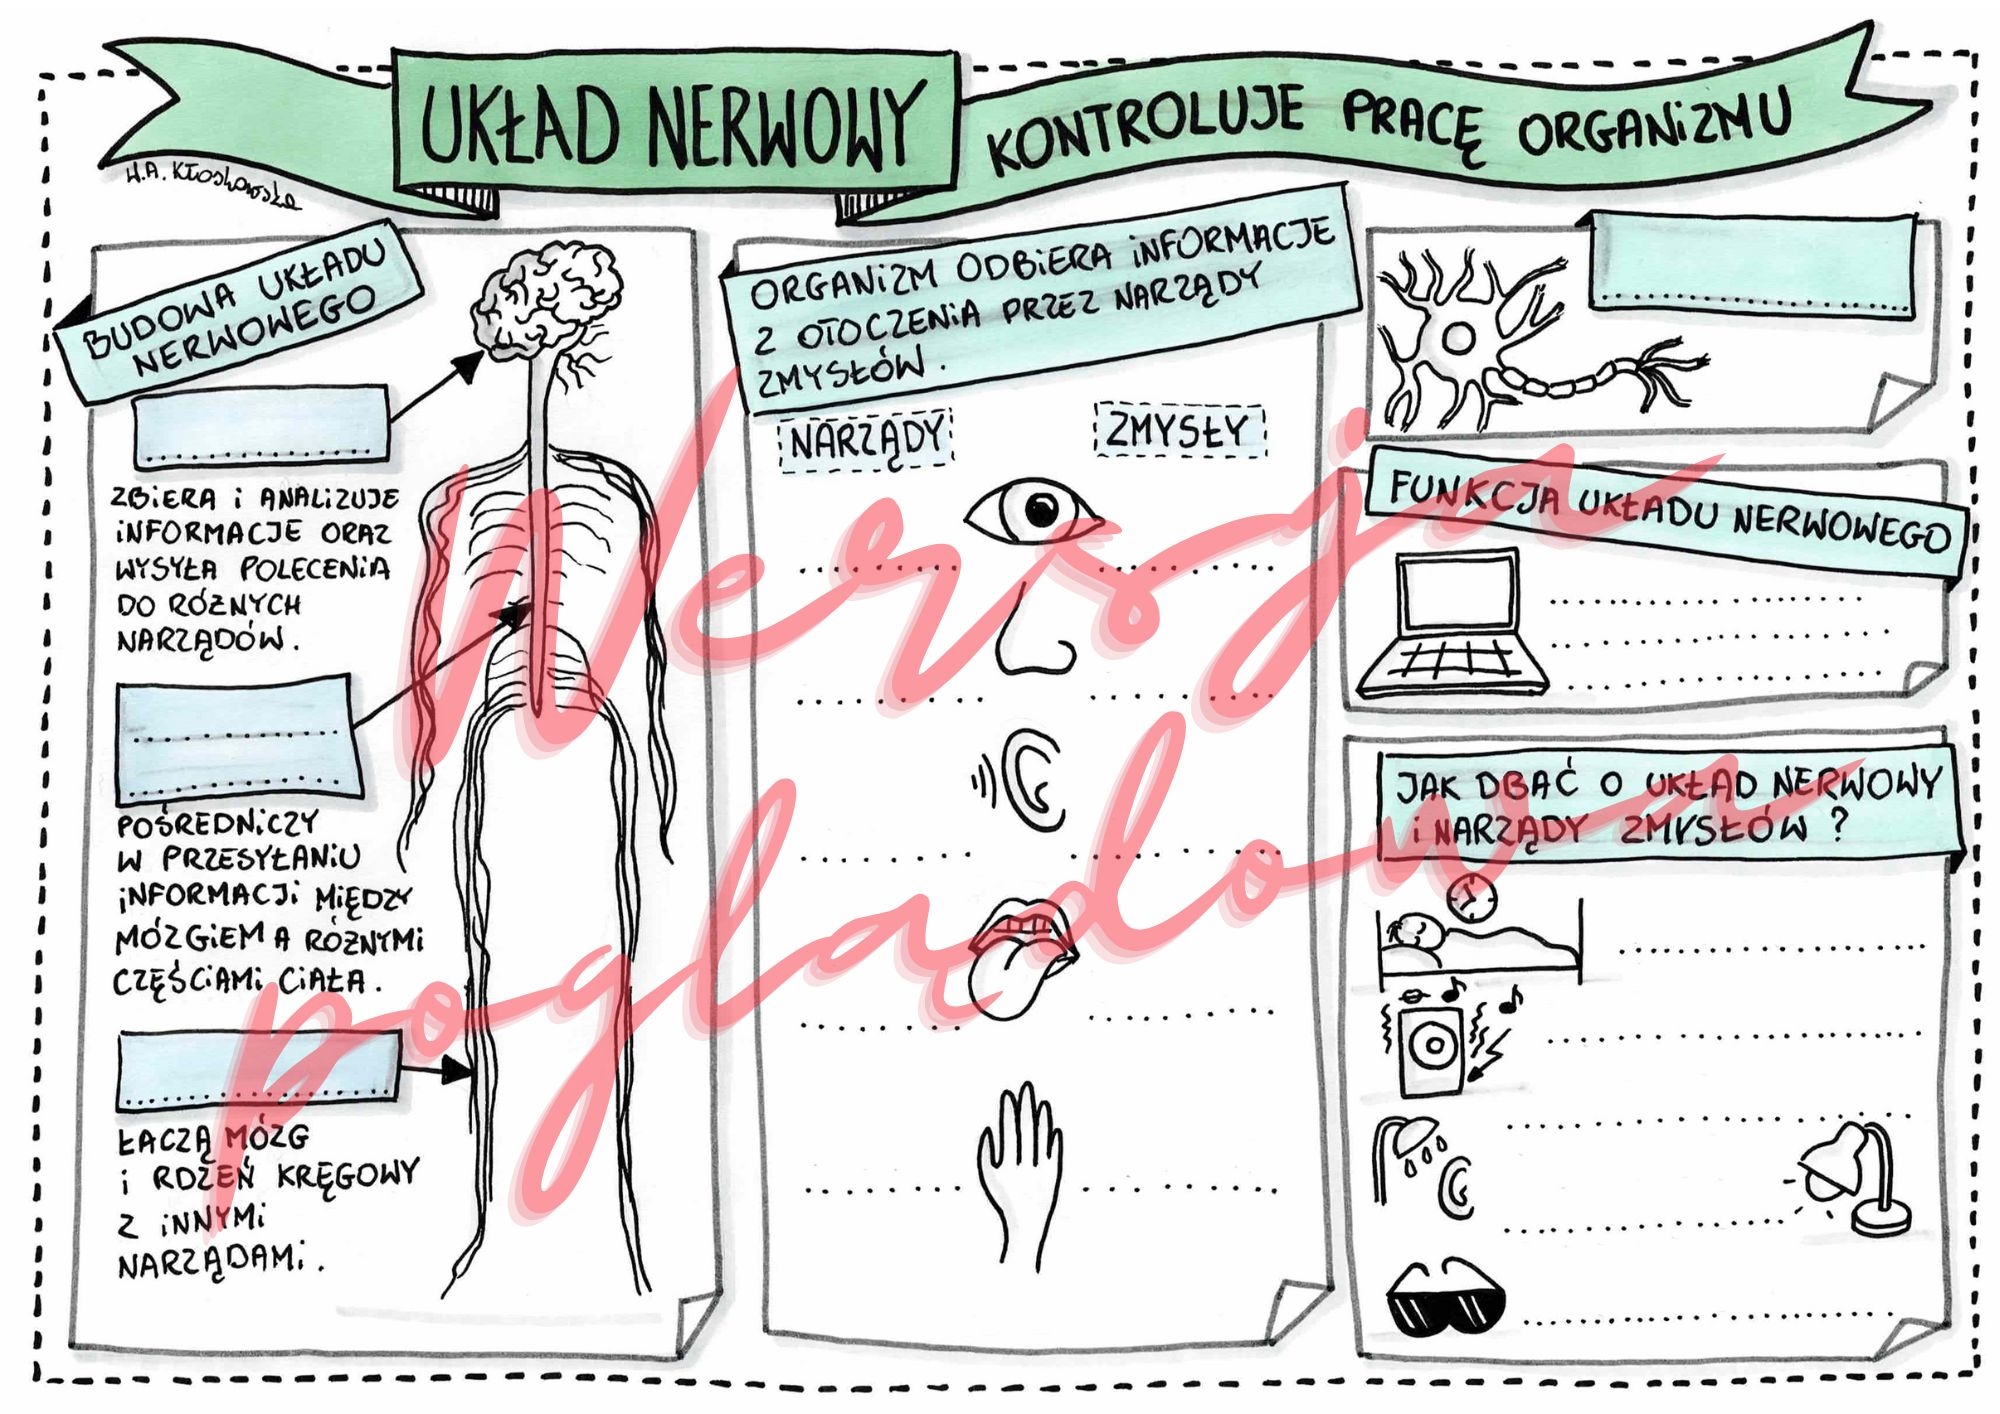 UKŁAD NERWOWY
KONTROLUJE PRACĘ ORGANiZMU
W.A. Kłoskowska
BUDOWA UKŁADU
NERWOWEGO
ZBiERA i ANALiZUJE
iNFORMACJE ORAZ
WYSYŁA POLECENiA
DO RÓŻNYCH
NARZĄDÓW.
POŚREDNiCZY
W PRZESYŁANiU
iNFORMACJi MiĘDZY
MÓZGiEM A RÓŻNYMi
CZĘŚCiAMi CiAŁA.
ŁACZĄ MÓZG
i RDZEŃ KRĘGOWY
Z iNNYMi
NARZĄDAMi.
ORGANiZM ODBiERA iNFORMACJE
Z OTOCZENiA PRZEZ NARZĄDY
ZMYSŁÓW.
NARZĄDY
ZMYSŁY
FUNKCJA UKŁADU NERWOWEGO
JAK DBAĆ O UKŁAD NERWOWY
i NARZĄDY ZMYSŁÓW?
Wersja
poglądowa